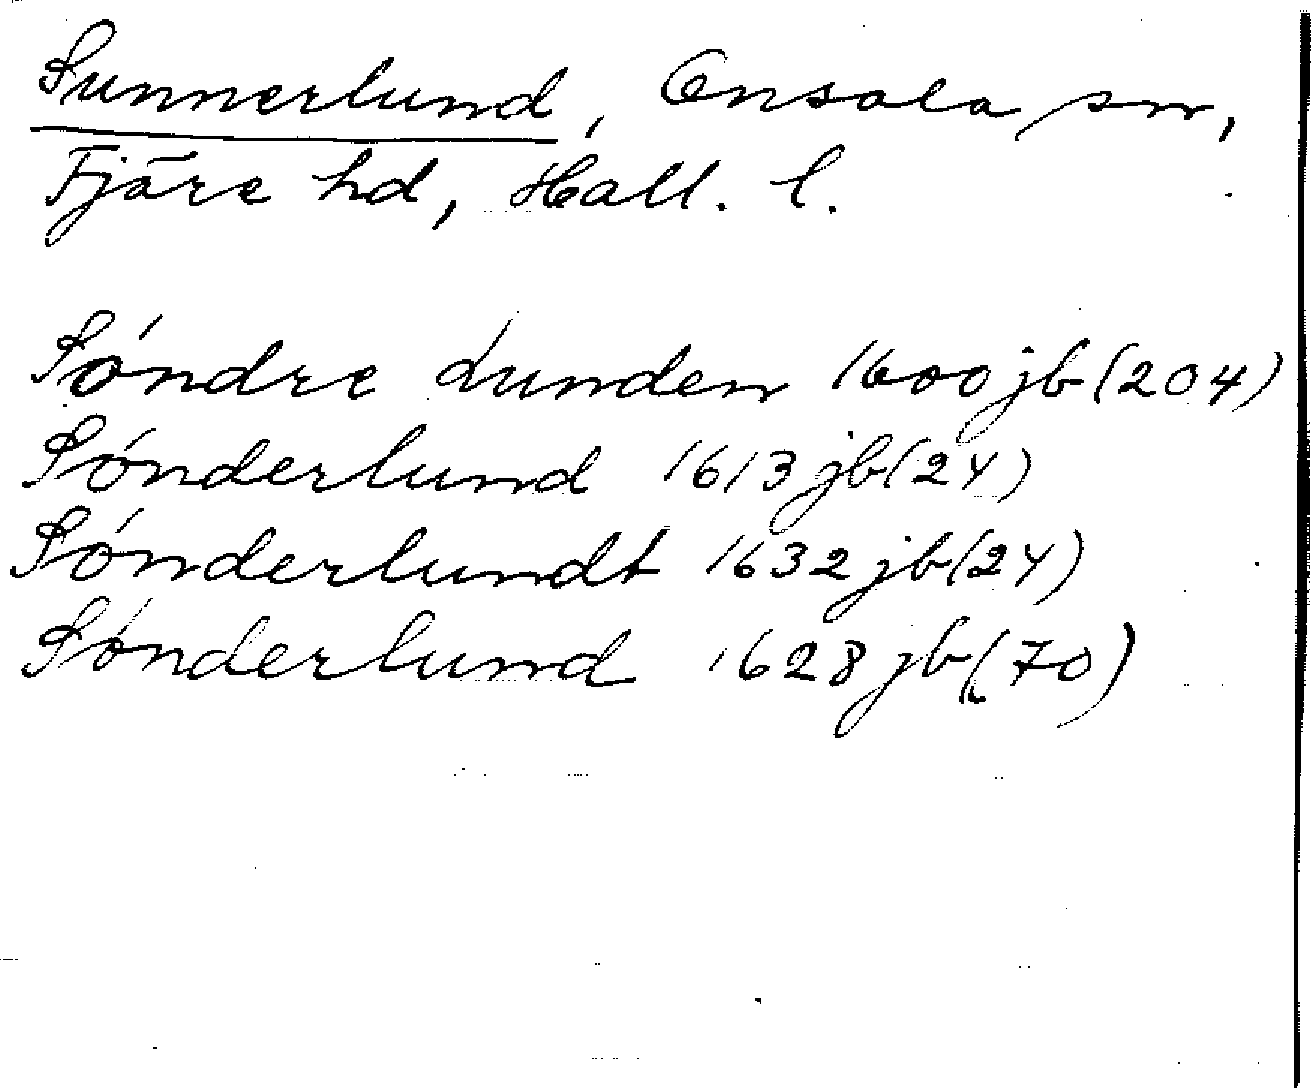 Sunnerlund, Onsala sn,
Fjäre hd, Hall. l.
Sóndre Lunden 1600 jb (204)
Sónderlund 1613 jb (24)
Sónderlundt 1632 jb (24)
Sónderlund 1628 jb (70)